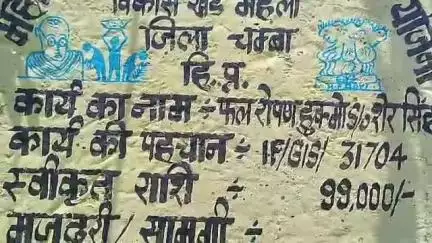 विकास खंड मैहला
जिला चम्बा
हि.प्र.
कार्य का नाम ÷ फल रोपण हुकमो S/o शेर सिंह
कार्य की पहचान ÷ IF/GIS/ 31704
स्वीकृत राशि ÷ 99,000/-
मजदूरी/ सामग्री ÷
योजना